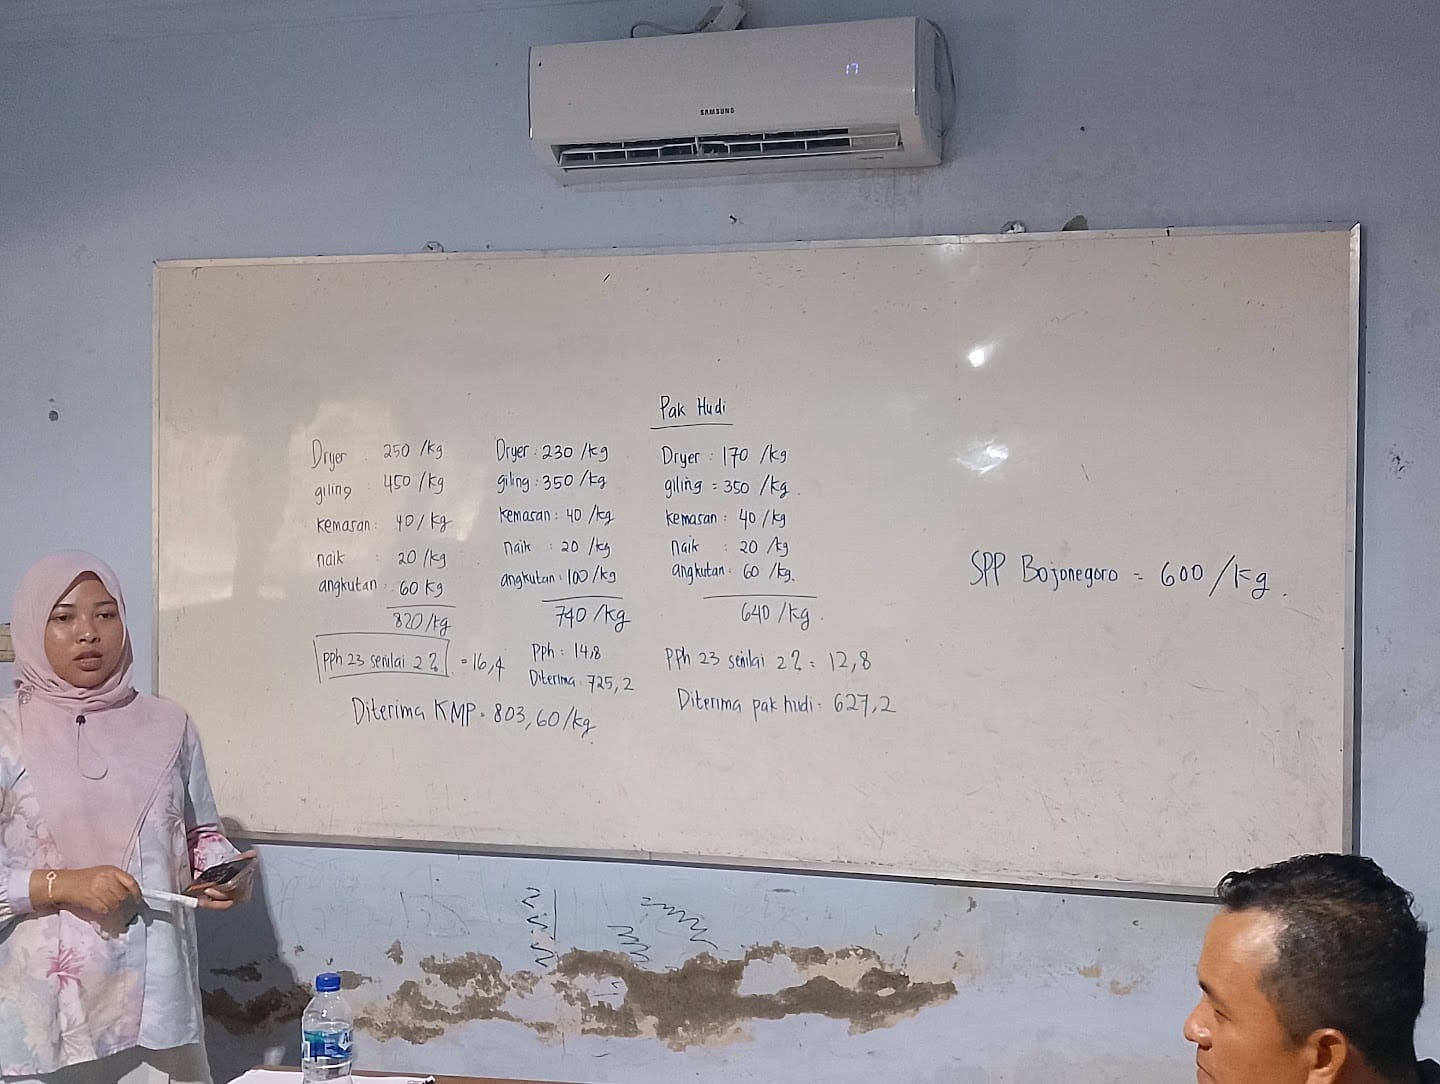 17
SAMSUNG
Dryer : 250 /kg
giling : 450 /kg
kemasan : 40 / kg
naik : 20 /kg
angkutan : 60 kg
820 /kg
pph 23 senilai 2% = 16,4
Diterima KMP = 803,60/kg
Dryer : 230 /kg
giling : 350 /kg
kemasan : 40 /kg
naik : 20 /kg
angkutan : 100 /kg
740 /kg
PPh : 14,8
Diterima : 725,2
Pak Hudi
Dryer : 170 /kg
giling = 350 /kg.
kemasan : 40 /kg
naik : 20 /kg
angkutan : 60 /kg.
640 /kg.
PPh 23 senilai 2% = 12,8
Diterima pak hudi : 627,2
SPP Bojonegoro = 600 /kg.